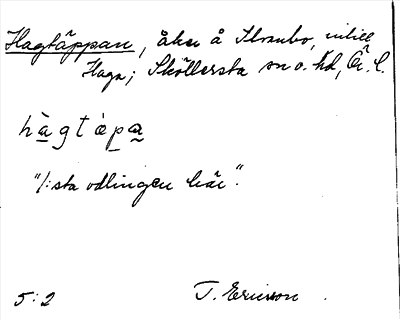 Hagtäppan, åker å Ikrusbo, intill
Haga; Sköllersta sn o. hd, Ör. l.
hàgtɛ̀pa
"1:sta odlingen här".
5:2
T. Ericsson.